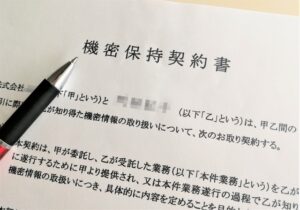 機密保持契約書
式会社 「甲」という)と (以下「乙」という)は、甲乙間の
引に際 乙が知り得た機密情報の取り扱いについて、次のお取り契約する。
本契約は、甲が委託し、乙が受託した業務(以下「本件業務」という)を乙が
に遂行するために甲より提供され、又は本件業務遂行の過程で乙が
機密情報の取扱いにつき、具体的に内容を定めることを目的